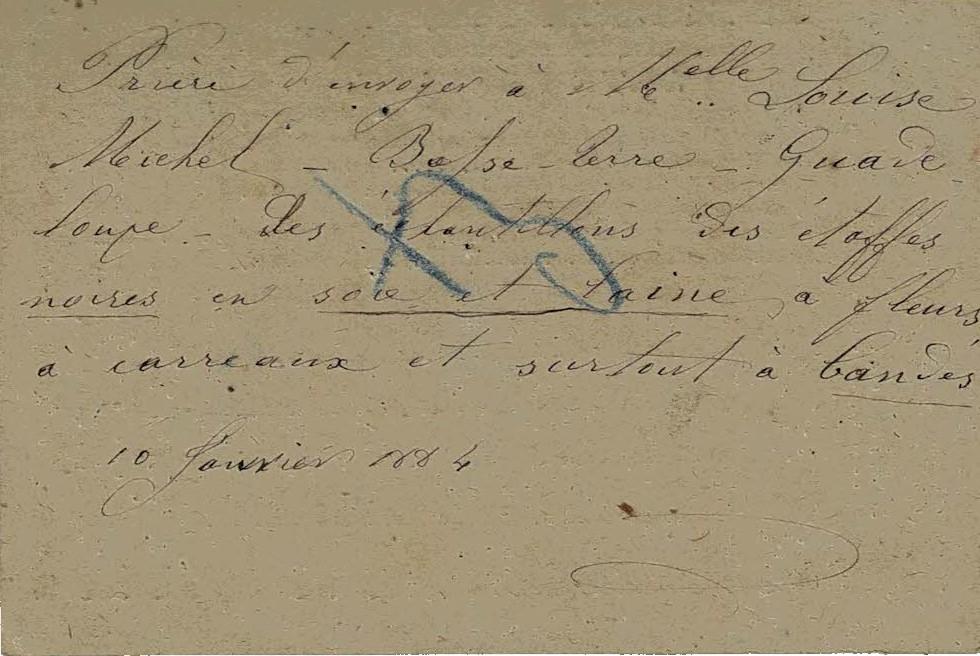 Prière d'envoyer à Melle Louise
Michel - Basse-terre - Guade
loupe - Des échantillons des étoffes
noires en soie et laine à fleurs
à carreaux et surtout à bandes
10 Janvier 1884